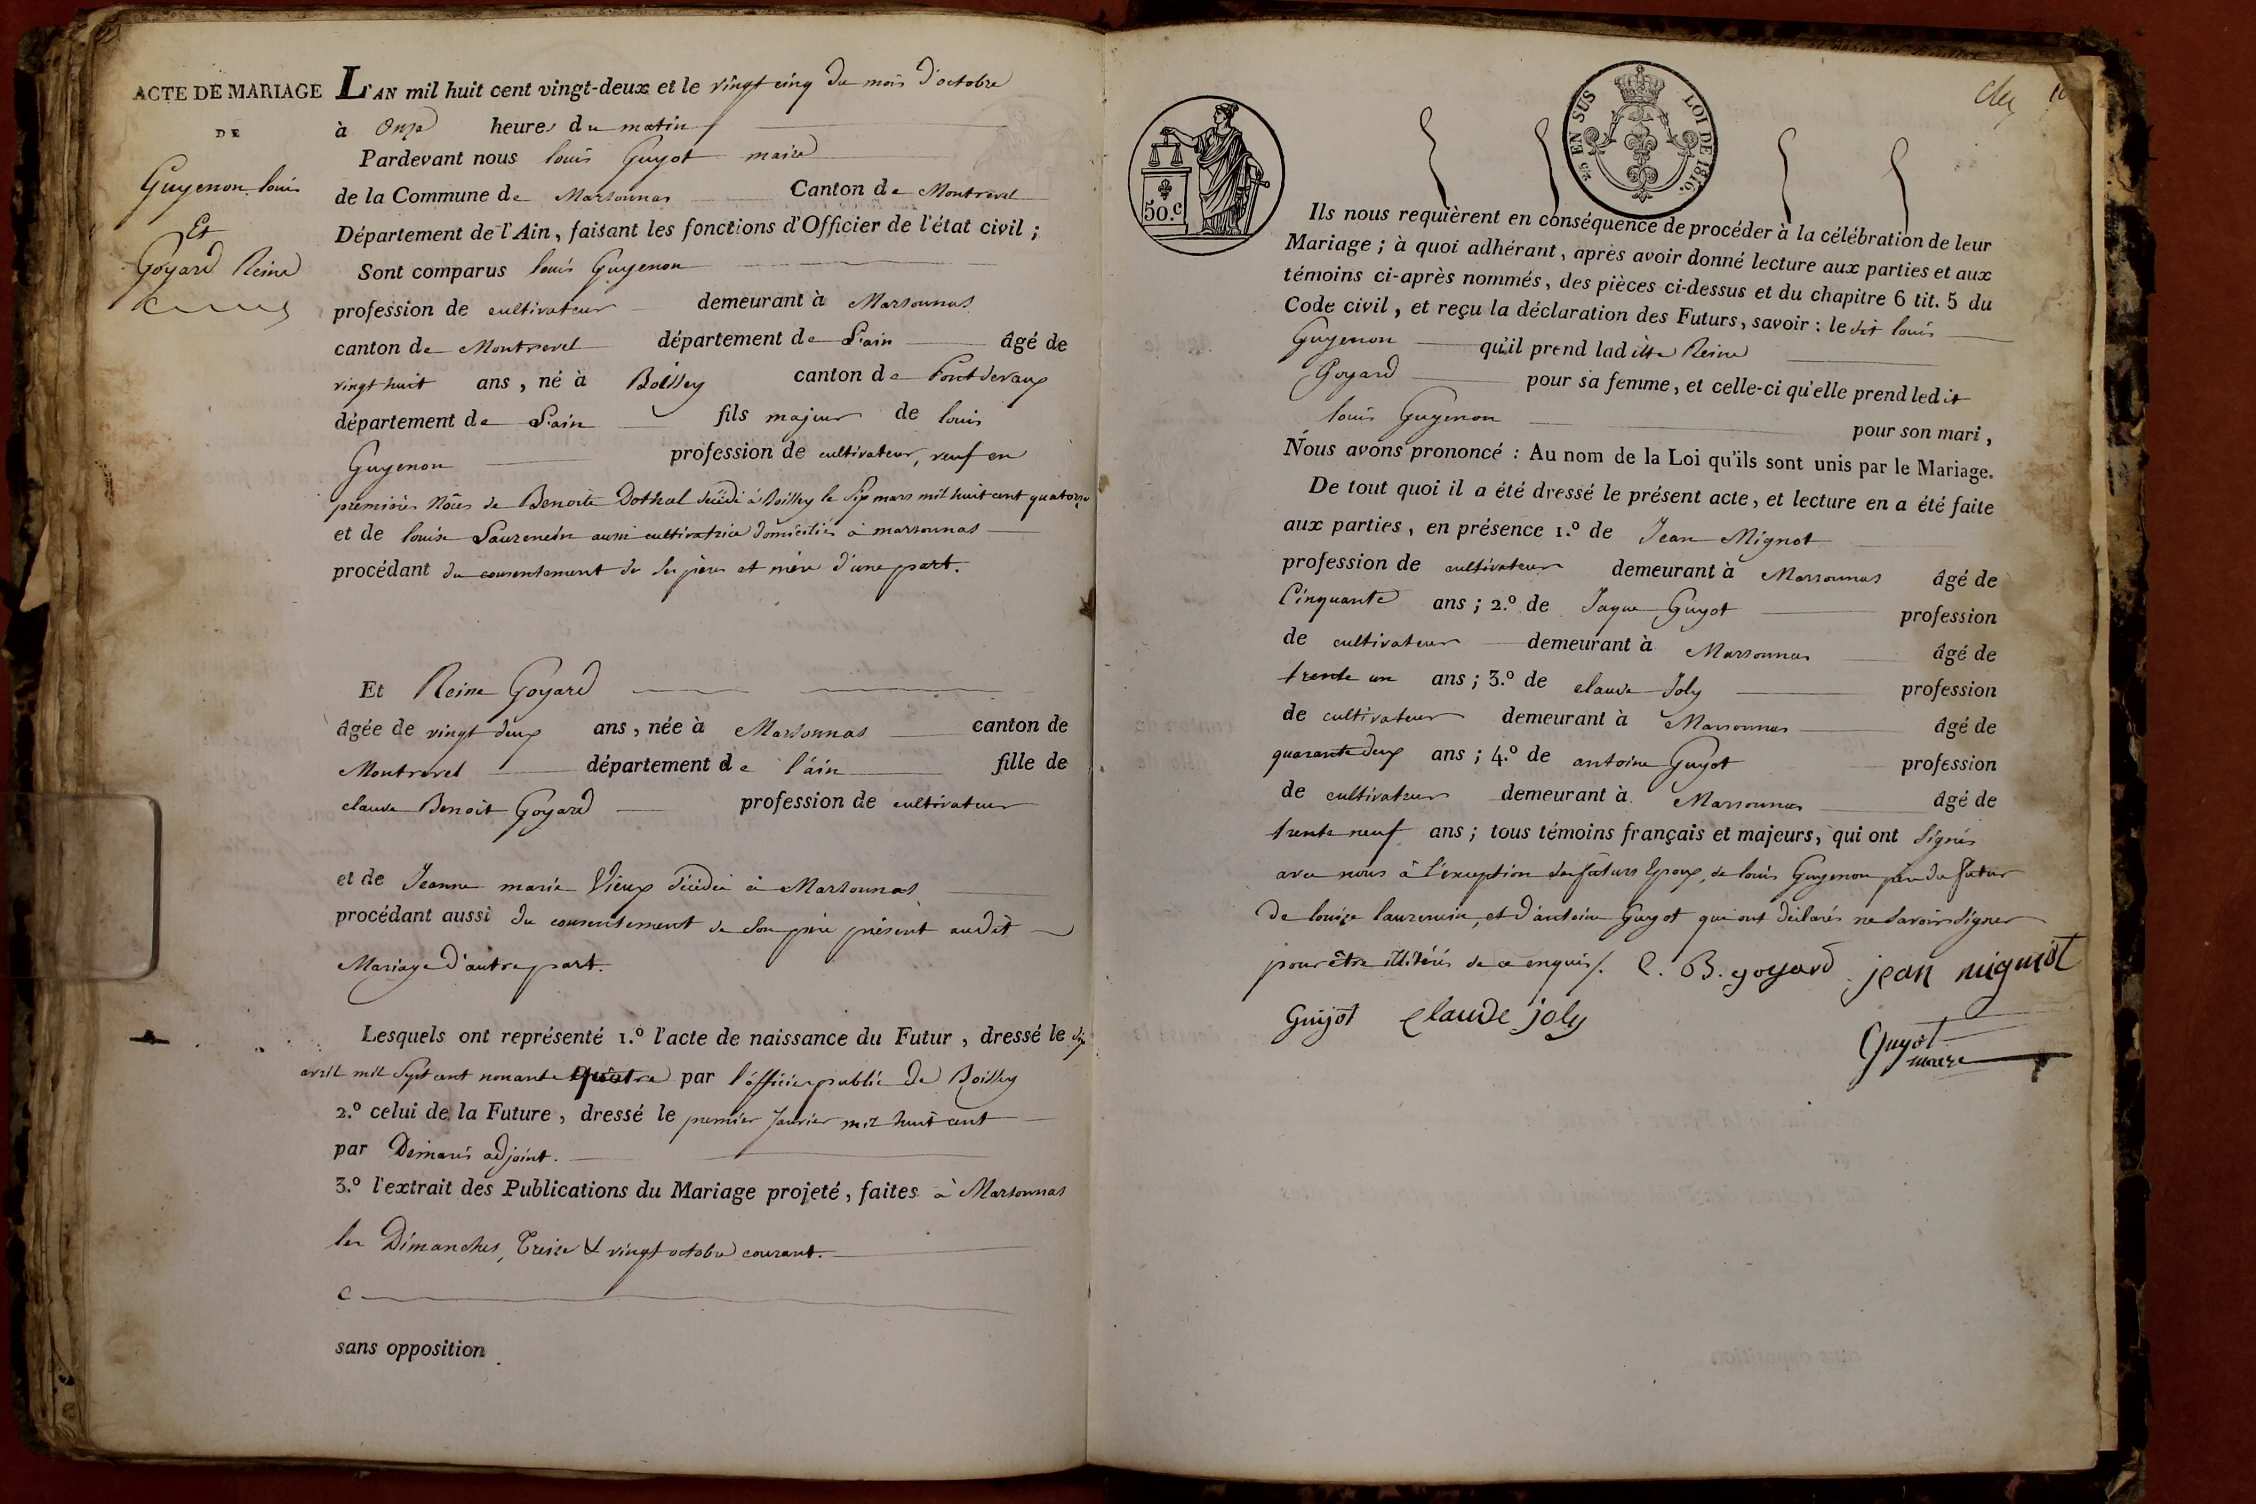 ACTE DE MARIAGE
DE
Guyenon louis
Et
Goyard Reine
L'AN mil huit cent vingt-deux et le vingt cinq du mois d'octobre
à Onze heures du matin
Pardevant nous louis Guyot maire
de la Commune de Marsonnas Canton de Montrevel
Département de l'Ain, faisant les fonctions d'Officier de l'état civil ;
Sont comparus louis Guyenon
profession de cultivateur demeurant à Marsonnas
canton de Montrevel département de L'ain âgé de
vingt huit ans, né à Boissey canton de Pontdevaux
département de L'ain fils majeur de louis
Guyenon profession de cultivateur, veuf en
premières Nôces de Benoite décédé à Boissey le Six mars mil huit cent quatorze
et de louise Laurencin aussi cultivatrice domiciliés à marsonnas
procédant du consentement de ses père et mère d'une part.
Et Reine Goyard
âgée de vingt deux ans, née à Marsonnas canton de
Montrevel département de l'ain fille de
claude Benoit Goyard profession de cultivateur
et de Jeanne marie Vieux décédée à Marsonnas
procédant aussi du consentement de Son père présent audit
Mariage d'autre part.
Lesquels ont représenté 1.º l'acte de naissance du Futur, dressé le
avril mil Sept cent nonante quatre par l'officier public de Boissey
2.º celui de la Future, dressé le premier Janvier mil huit cent
par adjoint.
3.º l'extrait des Publications du Mariage projeté, faites à Marsonnas
les Dimanches, Treize & vingt octobre courant.
sans opposition
50.c
25 EN SUS LOI DE 1816.
Ils nous requièrent en conséquence de procéder à la célébration de leur
Mariage ; à quoi adhérant, après avoir donné lecture aux parties et aux
témoins ci-après nommés, des pièces ci-dessus et du chapitre 6 tit. 5 du
Code civil, et reçu la déclaration des Futurs, savoir : le dit louis
Guyenon qu'il prend ladite Reine
Goyard pour sa femme, et celle-ci qu'elle prend ledit
louis Guyenon pour son mari,
Nous avons prononcé : Au nom de la Loi qu'ils sont unis par le Mariage.
De tout quoi il a été dressé le présent acte, et lecture en a été faite
aux parties, en présence 1.º de Jean Mignot
profession de cultivateur demeurant à Marsonnas âgé de
Cinquante ans ; 2.º de Jaque Guyot profession
de cultivateur demeurant à Marsonnas âgé de
trente un ans ; 3.º de claude Joly profession
de cultivateur demeurant à Marsonnas âgé de
quarante deux ans ; 4.º de antoine Guyot profession
de cultivateur demeurant à Marsonnas âgé de
trente neuf ans ; tous témoins français et majeurs, qui ont Signés
avec nous à l'exception des futurs Epoux, de louis Guyenon père du futur
De louise laurencin, et d'antoine Guyot qui ont déclarés ne Savoir Signer
pour être illitérés de ce enquis/. C. B. goyard jean mignot
Guijot Claude joly
Guyot
maire